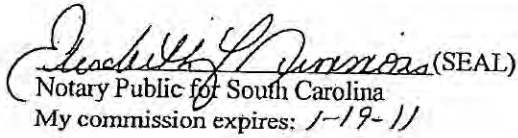 Elizabeth L Dimmons (SEAL)
Notary Public for South Carolina
My commission expires: 1-19-11